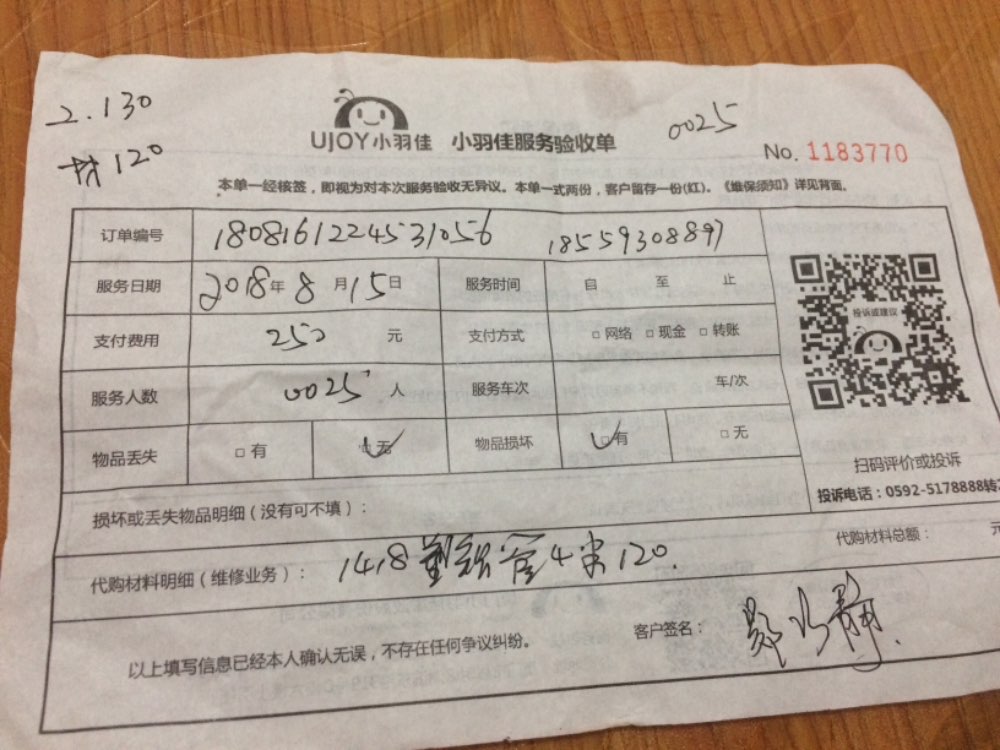 2.130
材120
UJOY小羽佳 小羽佳服务验收单
0025
No. 1183770
本单一经核签，即视为对本次服务验收无异议。本单一式两份，客户留存一份(红)。《维保须知》详见背面。
订单编号 1808161224531056 18559308897
服务日期 2018年8月15日 服务时间 自 至 止
支付费用 250 元 支付方式 □ 网络 □ 现金 □ 转账
服务人数 0025 人 服务车次 车/次
物品丢失 □ 有 □ 无 物品损坏 □ 有 □ 无
投诉或建议
扫码评价或投诉
投诉电话：0592-5178888转
损坏或丢失物品明细（没有可不填）：
代购材料明细（维修业务）： 1418塑铝管4米120 代购材料总额： 元
以上填写信息已经本人确认无误，不存在任何争议纠纷。 客户签名：